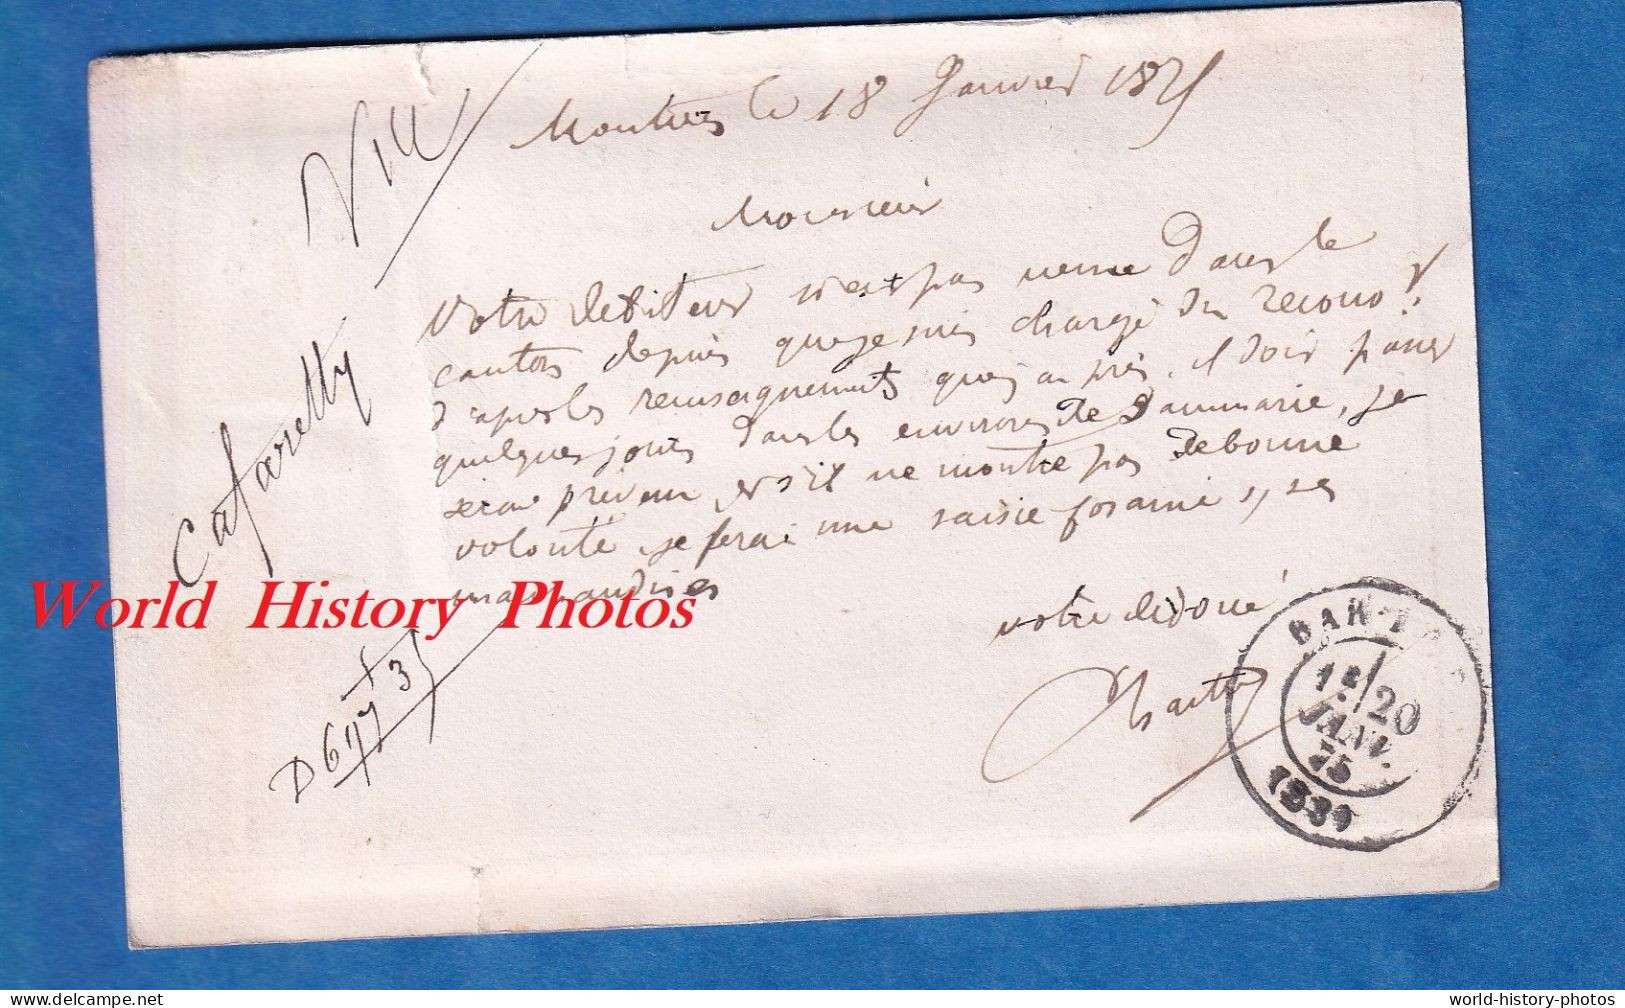 Montiers le 18 Janvier 1875
Monsieur
Votre debiteur n'est pas venu dans le
canton depuis que je suis chargé du recouvt
d'après les renseignements que j'ai pris, il doit passer
quelques jours dans les environs de Dammarie, je
serai prévenu, et s'il ne montre pas de bonne
volonté, je ferai une saisie foraine sur ses
marchandises
votre dévoué
Cafarelly
D 677
World History Photos
BAR-
1E / 20
JANV.
75
world-history-photos
world-history-photos